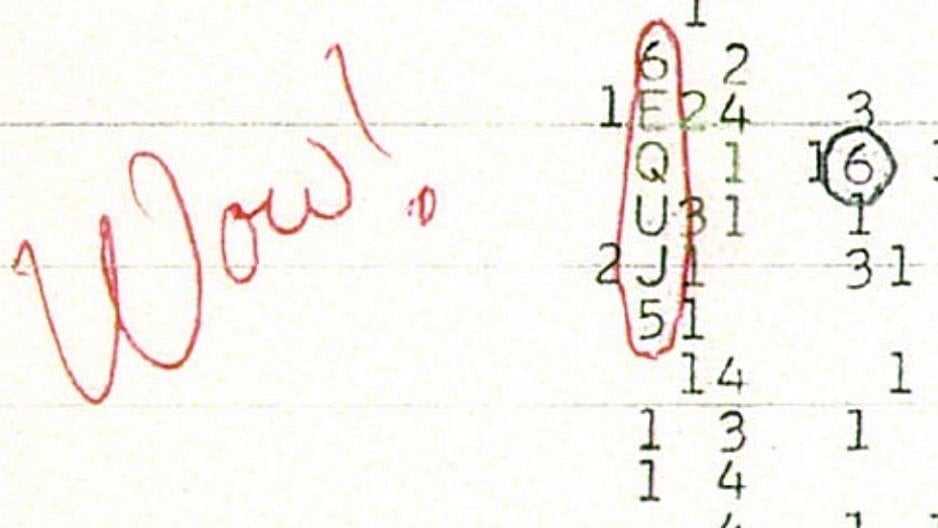 Wow!
1
6 2
1 E 2 4 3
Q 1 1 6 1
U 3 1 1
2 J 1 3 1
5 1
1 4 1
1 3 1
1 4
4 1 1